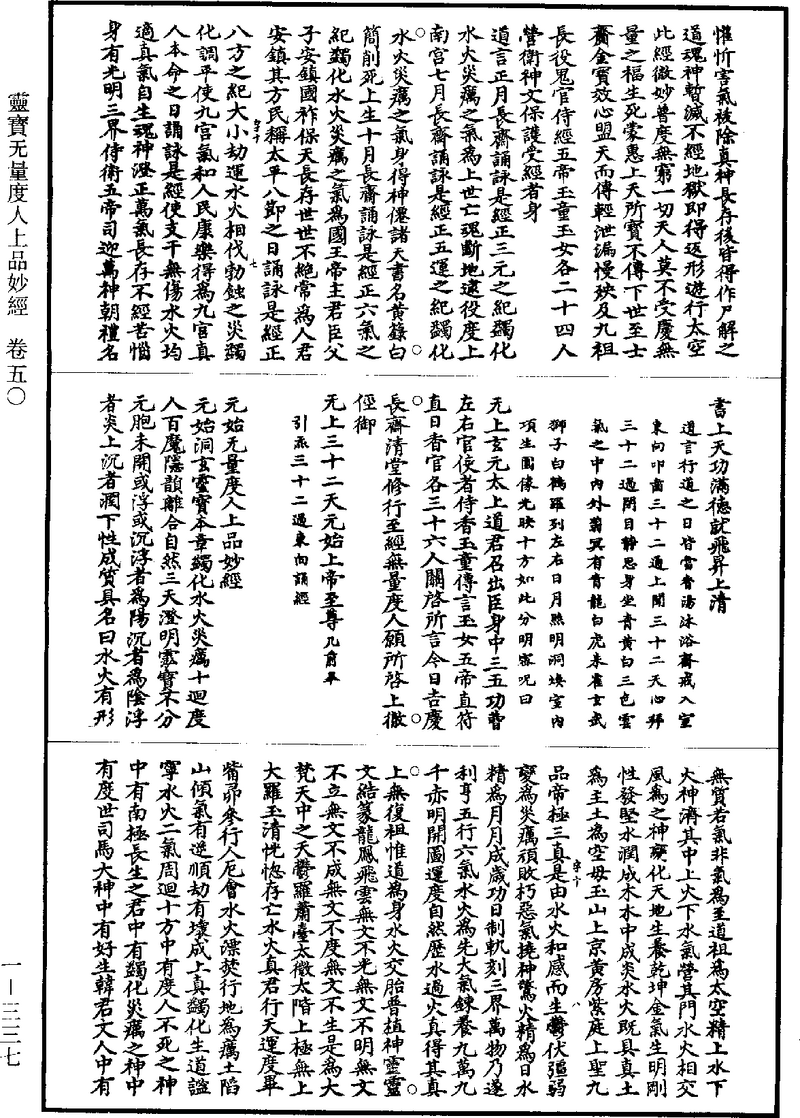 懽忻害氣被除真神長存後皆得作尸解之
道魂神暫滅不經地獄即得返形遊行太空
此經微妙普度無窮一切天人莫不受慶無
量之福生死蒙惠上天所寶不傳下世至士
齎金寶效心盟天而傳輕泄漏慢殃及九祖
長役鬼官侍經五帝玉童玉女各二十四人
營衛神文保護受經者身
道言正月長齋誦詠是經正三元之紀蠲化
水火災癘之氣為上世亡魂斷地逮役度上
南宮七月長齋誦詠是經正五運之紀蠲化
水火災癘之氣身得神僊諸天書名黃籙白
簡削死上生十月長齋誦詠是經正六氣之
紀蠲化水火災癘之氣為國王帝主君臣父
子安鎮國祚保天長存世世不絕常為人君
安鎮其方民稱太平八節之日誦詠是經正
八方之紀大小劫運水火相伐勃蝕之災蠲
化調平使九宮氣和人民康樂得為九宮真
人本命之日誦詠是經使支干無傷水火均
適真氣自生魂神澄正萬氣長存不經苦惱
身有光明三界侍衛五帝司迎萬神朝禮名
書上天功滿德就飛昇上清
道言行道之日皆當香湯沐浴齋戒入室
東向叩齒三十二通上聞三十二天心拜
三十二過閉目靜思身坐青黃白三色雲
氣之中內外蓊冥有青龍白虎朱雀玄武
獅子白鶴羅列左右日月照明洞煥室內
項生圓像光映十方如此分明密呪曰
无上玄元太上道君召出臣身中三五功曹
左右官使者侍香玉童傳言玉女五帝直符
直日香官各三十六人關啓所言今日吉慶
長齋清堂修行至經無量度人願所啓上徹
徑御
无上三十二天元始上帝至尊几前畢
引炁三十二過東向誦經
元始无量度人上品妙經
元始洞玄靈寶本章蠲化水火災癘十迴度
人百魔隱韻離合自然三天澄明靈寶不分
元胞未開或浮或沉浮者為陽沉者為陰浮
者炎上沉者潤下性成質具名曰水火有形
無質若氣非氣為至道祖為太空精上水下
火神濟其中上火下水氣營其門水火相交
風為之神變化天地生養乾坤金氣生明剛
性發堅水潤成木木中成炎水火既具真土
為主土為空毋玉山上京黃房紫庭上聖九
品帝極三真是由水火和感而生鬱伏強弱
變為災癘頑敗朽惡氣撓神驚火精為日水
精為月月成歲功日制軌刻三界萬物乃遂
利亨五行六氣水火為先大氣鍊養九萬九
千赤明開圖運度自然歷水過火真得其真
上無復祖惟道為身水火交胎普植神靈靈
文結篆龍鳳飛雲無文不光無文不明無文
不立無文不成無文不度無文不生是為大
梵天中之天鬱羅蕭臺太微太階上極無上
大羅玉清恍惚存亡水火真君行天運度畢
觜昴參行人厄會水火漂焚行地為癘土陷
山傾氣有逆順劫有壞成上真蠲化生道謐
寧水火二氣周迴十方中有度人不死之神
中有南極長生之君中有蠲化災癘之神中
有度世司馬大神中有好生韓君文人中有
靈寶无量度人上品妙經 卷五〇
一—三三七